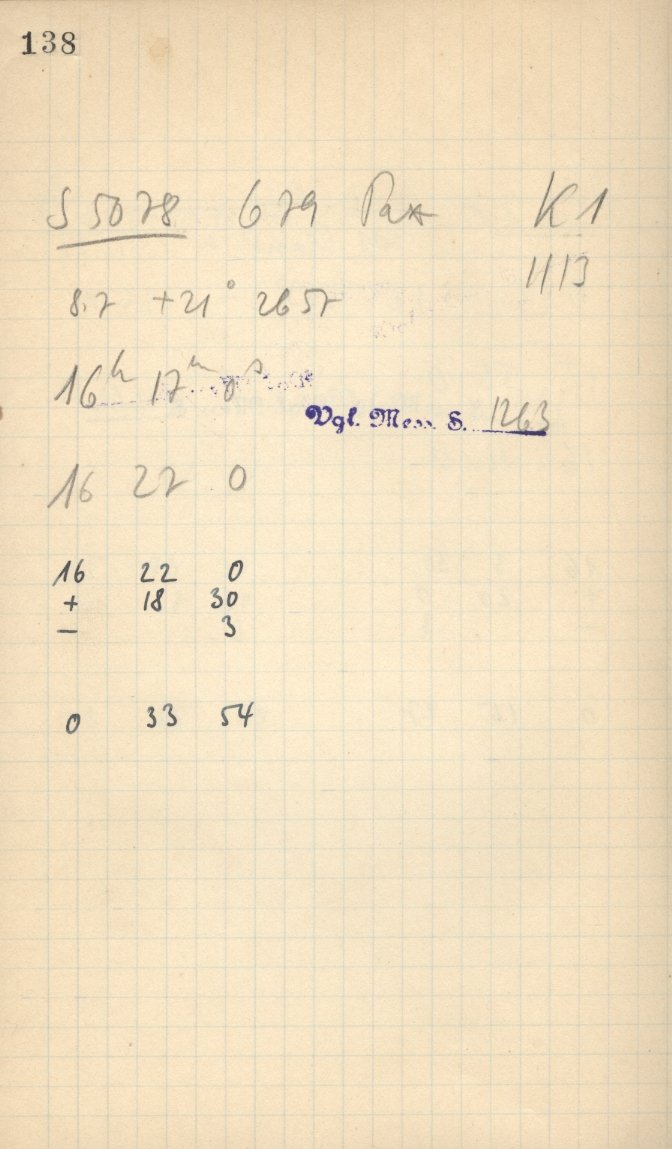 138
S 5078 679 Pax K1
1113
8.7 +21° 2657
16h 17m 0s
Vgl. Mess. S. 1263
16 27 0
16 22 0
+ 18 30
— 3
0 33 54